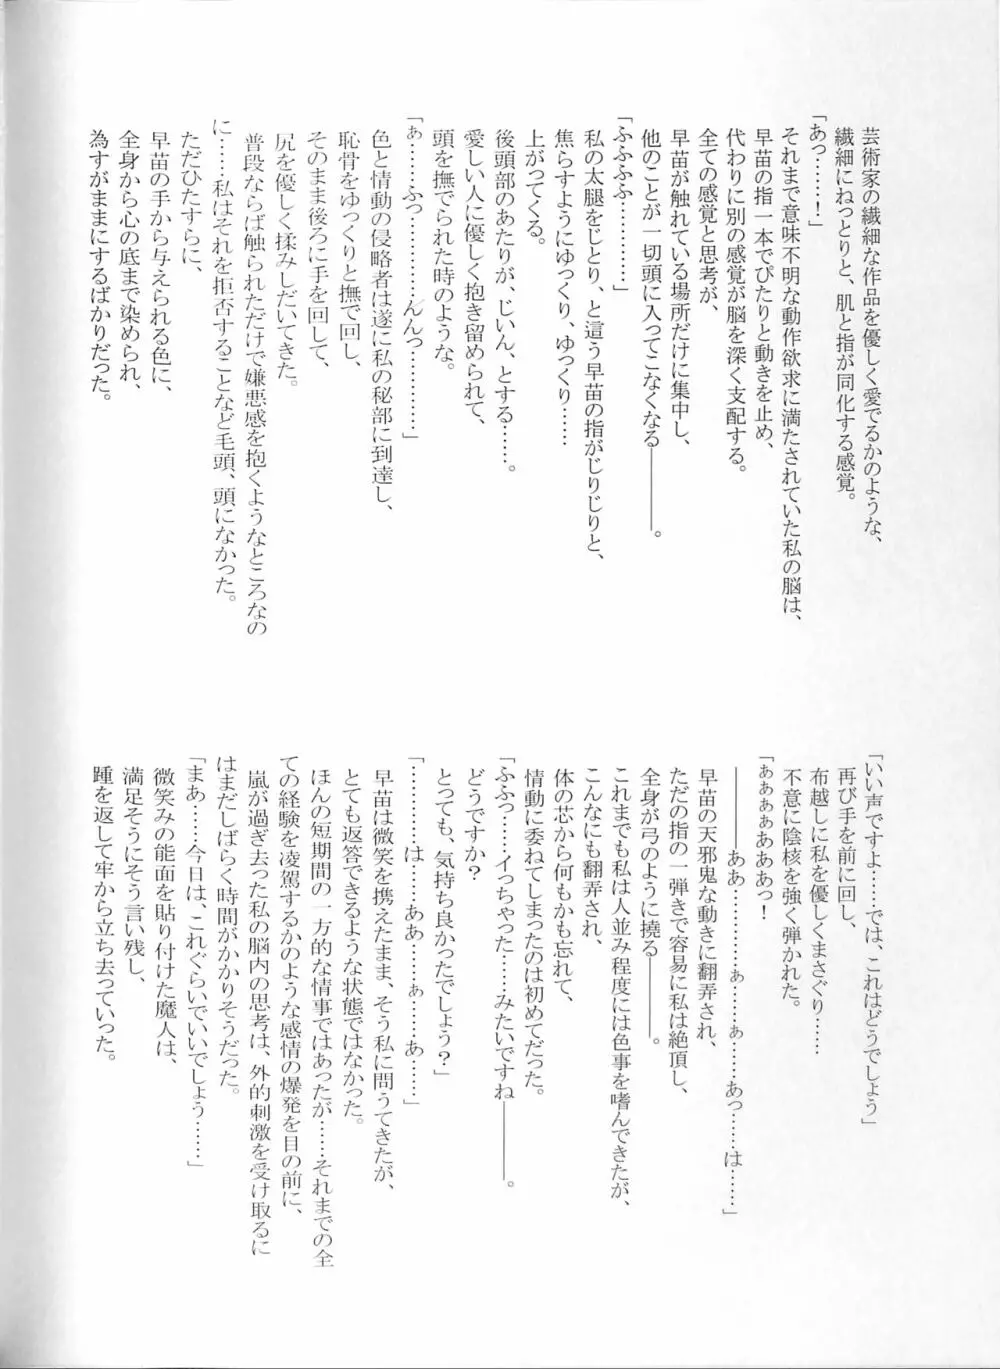 芸術家の繊細な作品を優しく愛でるかのような、
繊細にねっとりと、肌と指が同化する感覚。
「あっ………！」
それまで意味不明な動作欲求に満たされていた私の脳は、
早苗の指一本でぴたりと動きを止め、
代わりに別の感覚が脳を深く支配する。
全ての感覚と思考が、
早苗が触れている場所だけに集中し、
他のことが一切頭に入ってこなくなる―――。
「ふふふふ…………」
私の太腿をじとり、と這う早苗の指がじりじりと、
焦らすようにゆっくり、ゆっくり……
上がってくる。
後頭部のあたりが、じいん、とする……。
愛しい人に優しく抱き留められて、
頭を撫でられた時のような。
「ぁ……ふっ…………んんっ…………」
色と情動の侵略者は遂に私の秘部に到達し、
恥骨をゆっくりと撫で回し、
そのまま後ろに手を回して、
尻を優しく揉みしだいてきた。
普段ならば触られただけで嫌悪感を抱くようなところなの
に……私はそれを拒否することなど毛頭、頭になかった。
ただひたすらに、
早苗の手から与えられる色に、
全身から心の底まで染められ、
為すがままにするばかりだった。
「いい声ですよ……では、これはどうでしょう」
再び手を前に回し、
布越しに私を優しくまさぐり……
不意に陰核を強く弾かれた。
「ぁぁぁぁあああっ！
―――ああ…………ぁ……ぁ……あっ……は……」
早苗の天邪鬼な動きに翻弄され、
ただの指の一弾きで容易に私は絶頂し、
全身が弓のように撓る―――。
これまでも私は人並み程度には色事を嗜んできたが、
こんなにも翻弄され、
体の芯から何もかも忘れて、
情動に委ねてしまったのは初めてだった。
「ふふっ……イっちゃった……みたいですね―――。
どうですか？
とっても、気持ち良かったでしょう？」
「…………は……ああ……ぁ……あ……」
早苗は微笑を携えたまま、そう私に問うてきたが、
とても返答できるような状態ではなかった。
ほんの短期間の一方的な情事ではあったが……それまでの全
ての経験を凌駕するかのような感情の爆発を目の前に、
嵐が過ぎ去った私の脳内の思考は、外的刺激を受け取るに
はまだしばらく時間がかかりそうだった。
「まあ……今日は、これぐらいでいいでしょう……」
微笑みの能面を貼り付けた魔人は、
満足そうにそう言い残し、
踵を返して牢から立ち去っていった。